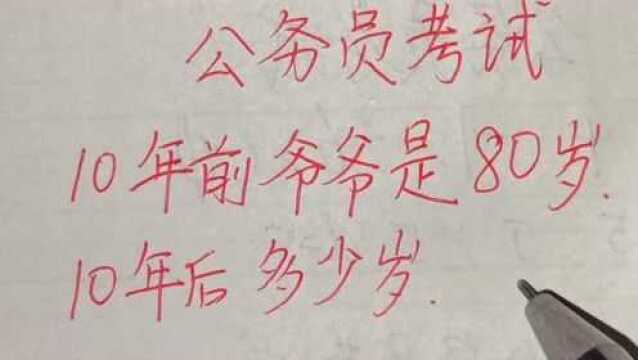 公务员考试
10年前爷爷是80岁.
10年后多少岁.